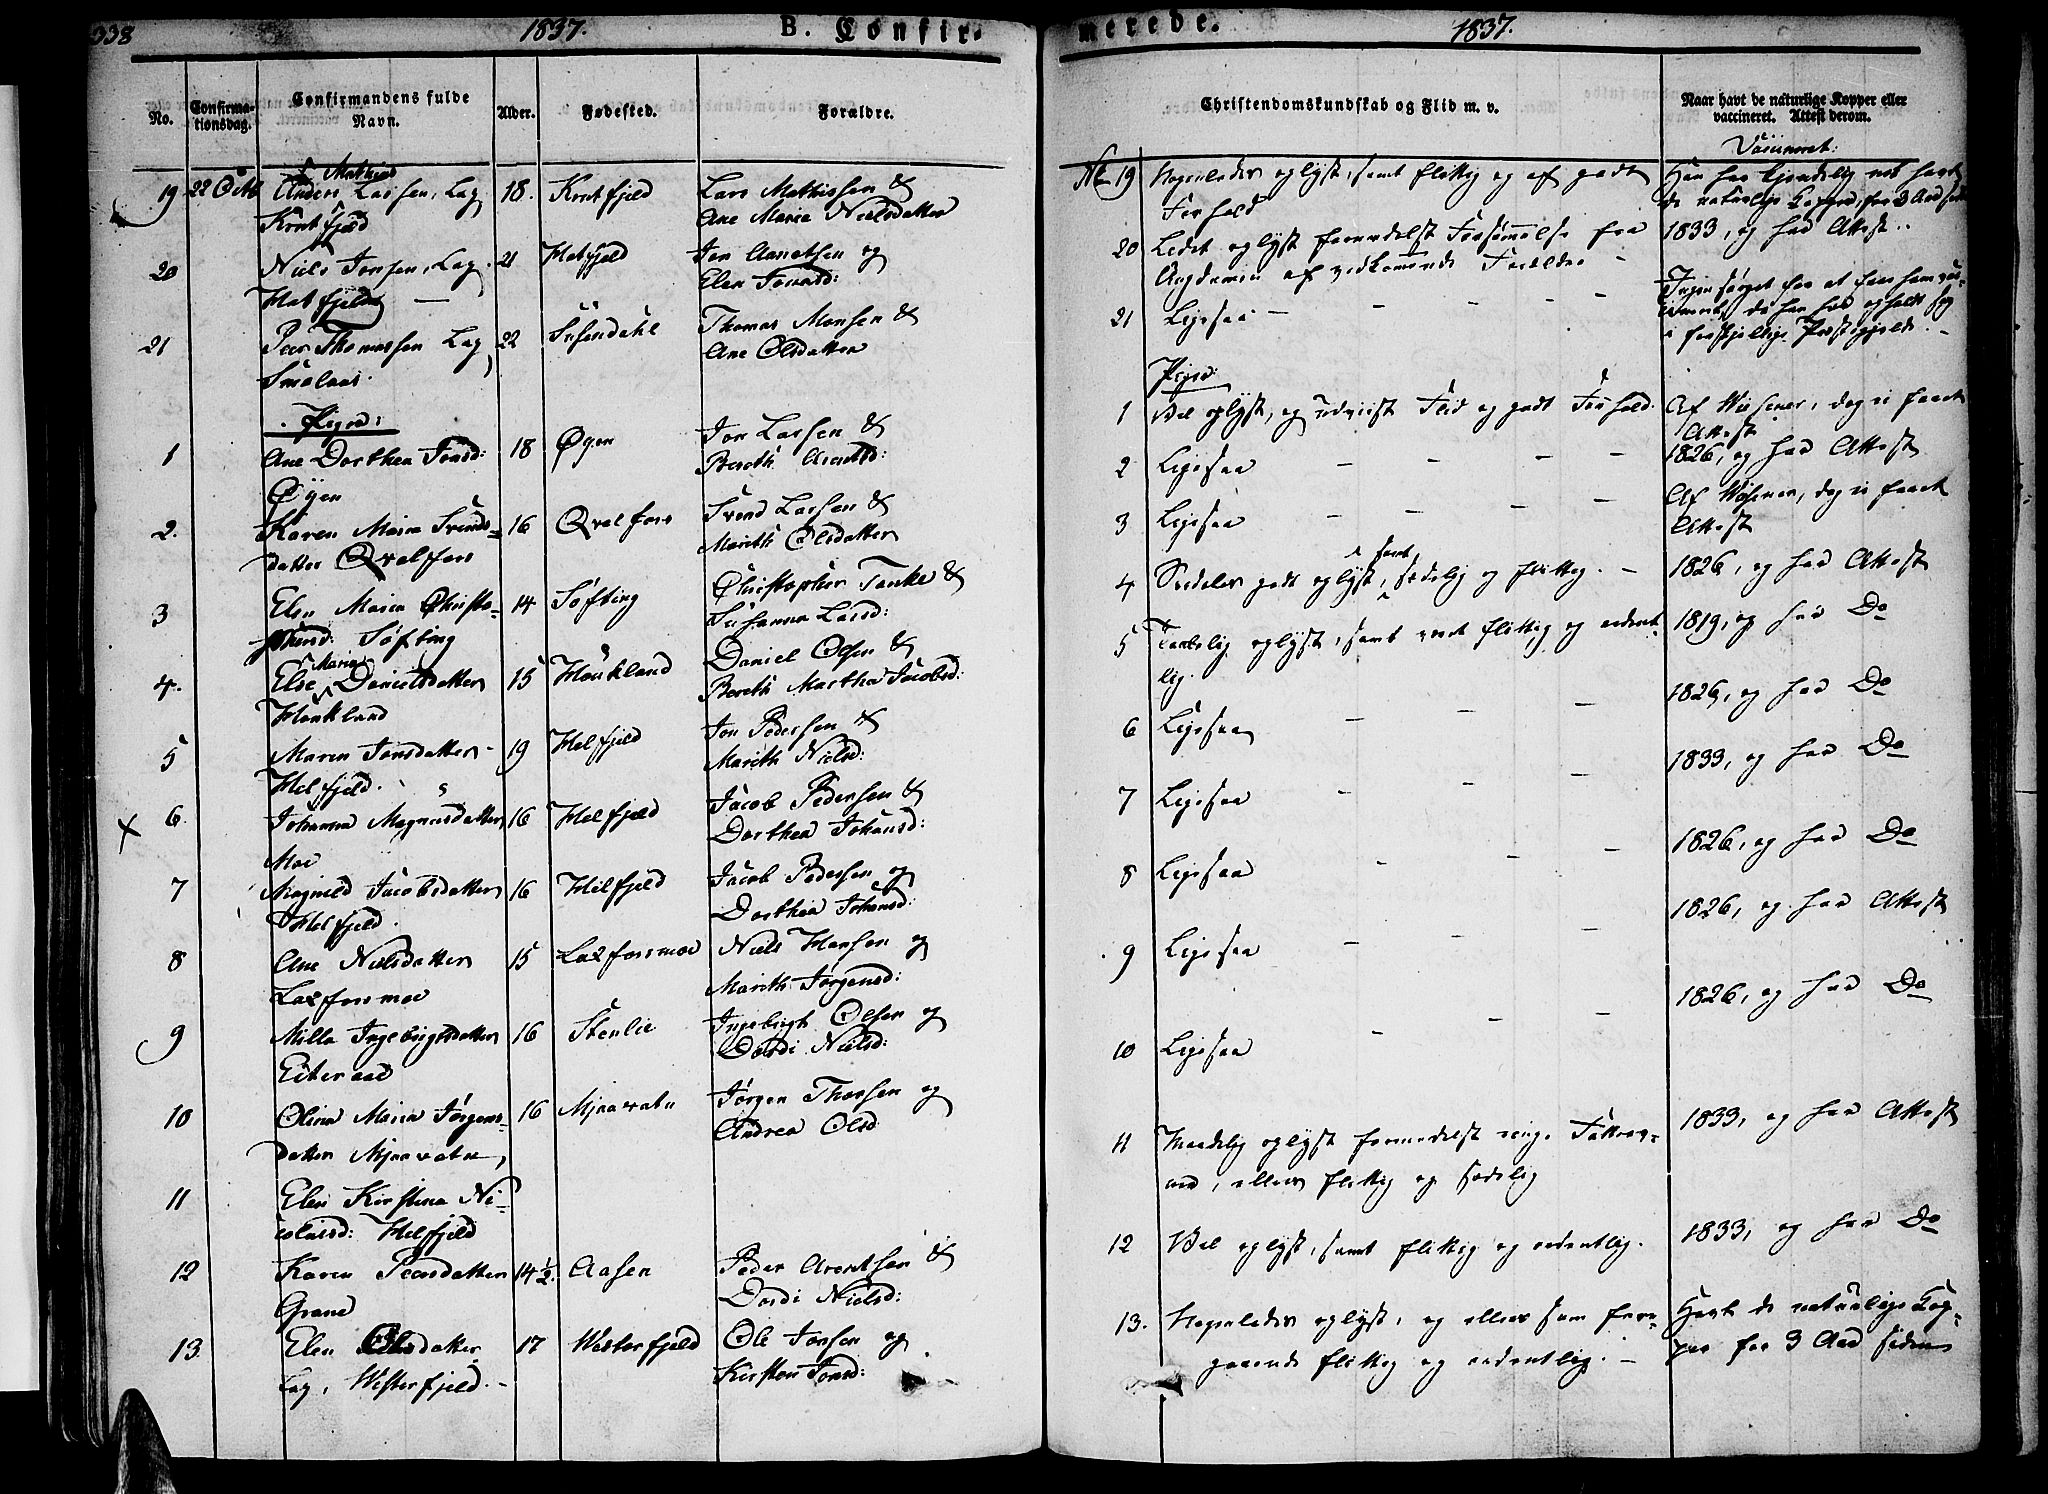 338
1837.
B. Confir-
No.
Confirma-
tionsdag.
Confirmandens fulde
Navn.
Alder.
Fødested.
Forældre.
Mathias
19 22 Octb Anders Larsen, Lap 18. Krutfjeld Lars Mathissen &
Krutfjeld Ane Maria Nielsdatter
20 Niels Jonsen, Lap. 21 Hatfjeld Jon Aanetsen og
Hatfjeld — Elen Jonasd:
21 Peer Thomassen Lap 22 Susendahl Thomas Monsen &
Smalaas. Ane Olsdatter
Piger:
1 Ane Dorthea Jonsd: 18 Øyen Jon Larsen &
Øyen Bereth Arentsd:
2. Karen Maria Svends- 16 Qvalfors Svend Larsen &
datter Qvalfors Marith Olsdatter
3 Elen Maria Christo- 14 Søfting Christopher Tanke &
phersd: Søfting Susanna Larsd:
Maria
4. Else Danielsdatter 15 Haukland Daniel Olsen &
Haukland Bereth Martha Jacobsd:
5 Maren Jonsdatter 19 Helfjeld Jon Pedersen &
Helfjeld. Marith Nielsd:
6. Johanna Magnusdatter 16 Helfjeld Jacob Pedersen &
Moe Dorthea Johansd:
7 Magnild Jacobsdatter 16 Helfjeld Jacob Pedersen og
Helfjeld. Dorthea Johansd:
8 Ane Nielsdatter 15 Laxforsmoe Niels Hansen og
Laxforsmoe Marith Jørgensd:
9 Milla Ingebrigtsdatter 16 Stenlie Ingebrigt Olsen og
Eiteraae Dordi Nielsd:
10 Olina Maria Jørgens- 16 Mjaavatn Jørgen Thorsen og
datter Mjaavatn, Andrea Olsd
11 Elen Kirstina Ni-
colaisd: Helfjeld
12 Karen Peersdatter 14½. Aasen Peder Arentsen &
Grane Dordi Nielsd:
13. Elen Olsdatter 17 Westerfjeld Ole Jonsen og
Lap, Westerfjeld. — Kirsten Jonsd:
merede.
1837.
Christendomskundskab og Flid m. v.
Naar havt de naturlige Kopper eller
vaccineret. Attest derom.
Vaccineret:
No 19 Nogenledes oplyst, samt flittig og af godt
Forhold
de naturlige Kopper, for 3 Aar siden
20 Ledet oplyst formedelst Forsømmelse fra
1833, og har Attest.
Ungdommen af vedkommende Forældre —
21 Ligesaa — — — —
i forskjellige Præstegjelde. —
Piger:
1 Vel oplyst, og udviist Flid og godt Forhold. Af Wiisener, dog ei faaet
Attest
2 Ligesaa — — — — 1826, og har Attest
3 Ligesaa — — — Af Wiisener, dog ei faaet
Attest
samt
4 Særdeles godt oplyst, sædelig og flittig. — 1826, og har Attest
5 Taalelig oplyst, samt været flittig og ordent- 1819, og har Do
lig.
6 Ligesaa — — — 1826, og har Do
7 Ligesaa — — — 1833, og har Do
8 Ligesaa — — — 1826, og har Do
9 Ligesaa — — — 1826, og har Attest
10 Ligesaa — — — 1826, og har Do
11 Maadelig oplyst formedelst ringe Fatteev- 1833, og har Attest
ne, ellers flittig og sædelig
12 Vel oplyst, samt flittig og ordentlig. 1833, og har Do
13. Nogenledes oplyst, og ellers som fore- Havt de naturlige Kop-
gaaende flittig og ordentlig. — per for 3 Aar siden